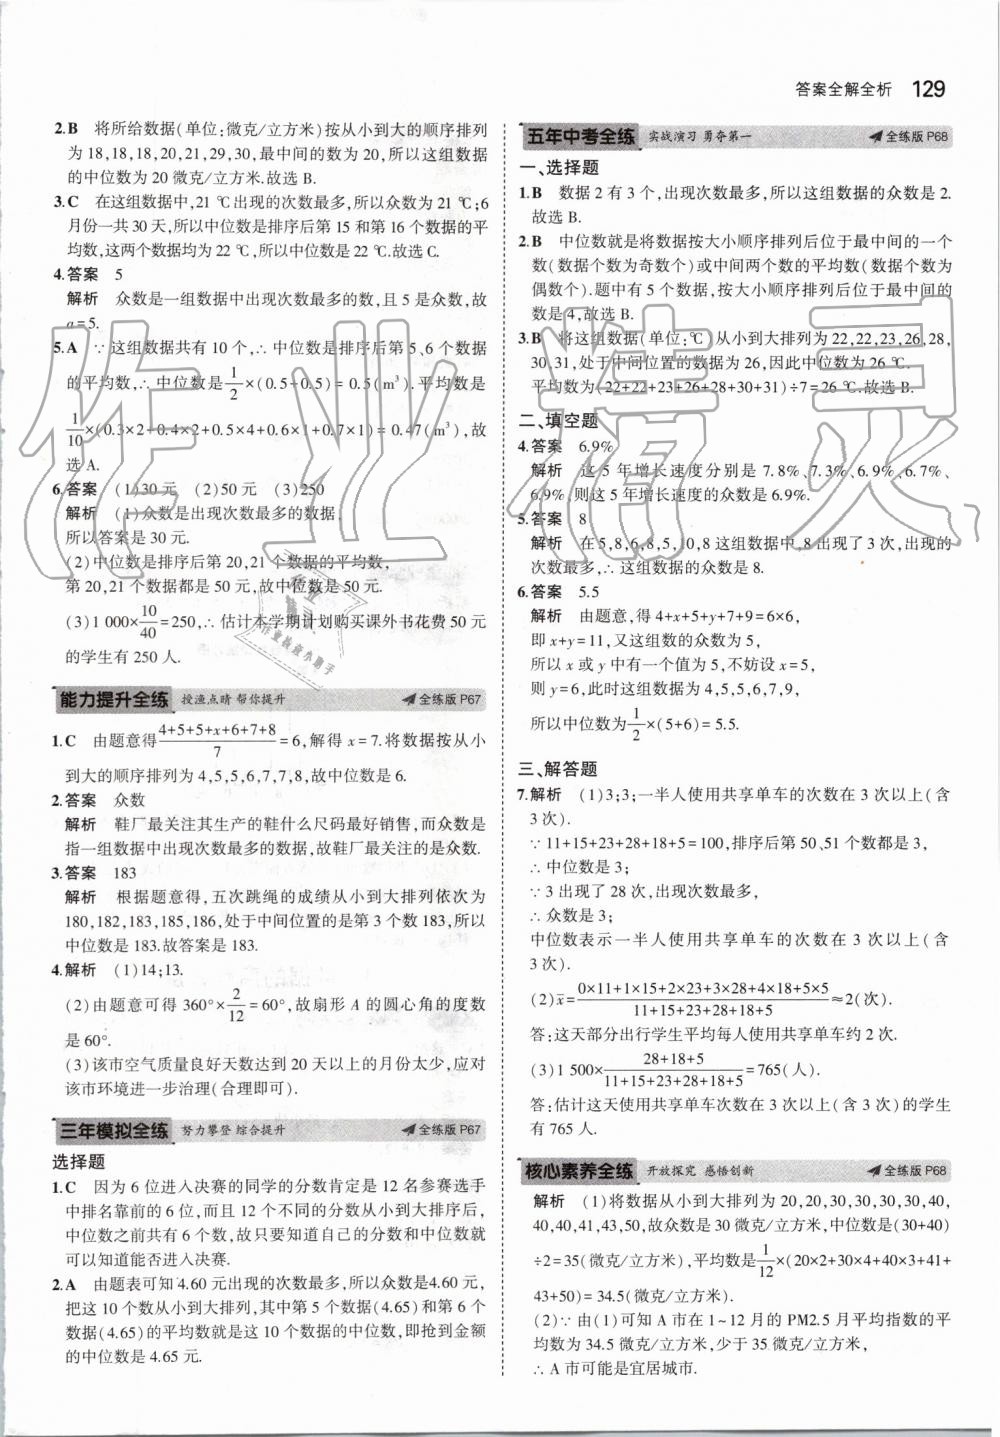 答案全解全析 129
2.B 将所给数据(单位:微克/立方米)按从小到大的顺序排列
为18,18,18,20,21,29,30,最中间的数为20,所以这组数据
的中位数为20微克/立方米.故选B.
3.C 在这组数据中,21 ℃出现的次数最多,所以众数为21 ℃;6
月份一共30天,所以中位数是排序后第15和第16个数据的平
均数,这两个数据均为22 ℃,所以中位数是22 ℃.故选C.
4.答案 5
解析 众数是一组数据中出现次数最多的数,且5是众数,故
a=5.
5.A ∵这组数据共有10个,∴中位数是排序后第5、6个数据
的平均数,∴中位数是1/2×(0.5+0.5)=0.5(m³).平均数是
1/10×(0.3×2+0.4×2+0.5×4+0.6×1+0.7×1)=0.47(m³),故
选A.
6.答案 (1)30元 (2)50元 (3)250
解析 (1)众数是出现次数最多的数据,
所以答案是30元.
(2)中位数是排序后第20,21个数据的平均数,
第20,21个数据都是50元,故中位数是50元.
(3)1 000×10/40=250,∴估计本学期计划购买课外书花费50元
的学生有250人.
能力提升全练 授渔点睛 帮你提升 全练版P67
1.C 由题意得(4+5+5+x+6+7+8)/7=6,解得x=7.将数据按从小
到大的顺序排列为4,5,5,6,7,7,8,故中位数是6.
2.答案 众数
解析 鞋厂最关注其生产的鞋什么尺码最好销售,而众数是
指一组数据中出现次数最多的数据,故鞋厂最关注的是众数.
3.答案 183
解析 根据题意得,五次跳绳的成绩从小到大排列依次为
180,182,183,185,186,处于中间位置的是第3个数183,所以
中位数是183.故答案是183.
4.解析 (1)14;13.
(2)由题意可得360°×2/12=60°,故扇形A的圆心角的度数
是60°.
(3)该市空气质量良好天数达到20天以上的月份太少,应对
该市环境进一步治理(合理即可).
三年模拟全练 努力攀登 综合提升 全练版P67
选择题
1.C 因为6位进入决赛的同学的分数肯定是12名参赛选手
中排名靠前的6位,而且12个不同的分数从小到大排序后,
中位数之前共有6个数,故只要知道自己的分数和中位数就
可以知道能否进入决赛.
2.A 由题表可知4.60元出现的次数最多,所以众数是4.60元,
把这10个数从小到大排列,其中第5个数据(4.65)和第6个
数据(4.65)的平均数就是这10个数据的中位数,即抢到金额
的中位数是4.65元.
五年中考全练 实战演习 勇夺第一 全练版P68
一、选择题
1.B 数据2有3个,出现次数最多,所以这组数据的众数是2.
故选B.
2.B 中位数就是将数据按大小顺序排列后位于最中间的一个
数(数据个数为奇数个)或中间两个数的平均数(数据个数为
偶数个).题中有5个数据,按大小顺序排列后位于最中间的
数是4,故选B.
3.B 将这组数据(单位:℃)从小到大排列为22,22,23,26,28,
30,31,处于中间位置的数据为26,因此中位数为26 ℃.
平均数为(22+22+23+26+28+30+31)÷7=26 ℃.故选B.
二、填空题
4.答案 6.9%
解析 这5年增长速度分别是7.8%、7.3%、6.9%、6.7%、
6.9%,则这5年增长速度的众数是6.9%.
5.答案 8
解析 在5,8,6,8,5,10,8这组数据中,8出现了3次,出现的
次数最多,∴这组数据的众数是8.
6.答案 5.5
解析 由题意,得4+x+5+y+7+9=6×6,
即x+y=11,又这组数的众数为5,
所以x或y中有一个值为5,不妨设x=5,
则y=6,此时这组数据为4,5,5,6,7,9,
所以中位数为1/2×(5+6)=5.5.
三、解答题
7.解析 (1)3;3;一半人使用共享单车的次数在3次以上(含
3次).
∵11+15+23+28+18+5=100,排序后第50、51个数都是3,
∴中位数是3;
∵3出现了28次,出现次数最多,
∴众数是3;
中位数表示一半人使用共享单车的次数在3次以上(含
3次).
(2)x̄=(0×11+1×15+2×23+3×28+4×18+5×5)/(11+15+23+28+18+5)≈2(次).
答:这天部分出行学生平均每人使用共享单车约2次.
(3)1 500×(28+18+5)/(11+15+23+28+18+5)=765(人).
答:估计这天使用共享单车次数在3次以上(含3次)的学生
有765人.
核心素养全练 开放探究 感悟创新 全练版P68
解析 (1)将数据从小到大排列为20,20,30,30,30,30,40,
40,40,41,43,50,故众数是30微克/立方米,中位数是(30+40)
÷2=35(微克/立方米),平均数是1/12×(20×2+30×4+40×3+41+
43+50)=34.5(微克/立方米).
(2)∵由(1)可知A市在1~12月的PM2.5月平均指数的平
均数为34.5微克/立方米,少于35微克/立方米,
∴A市可能是宜居城市.
作业精灵